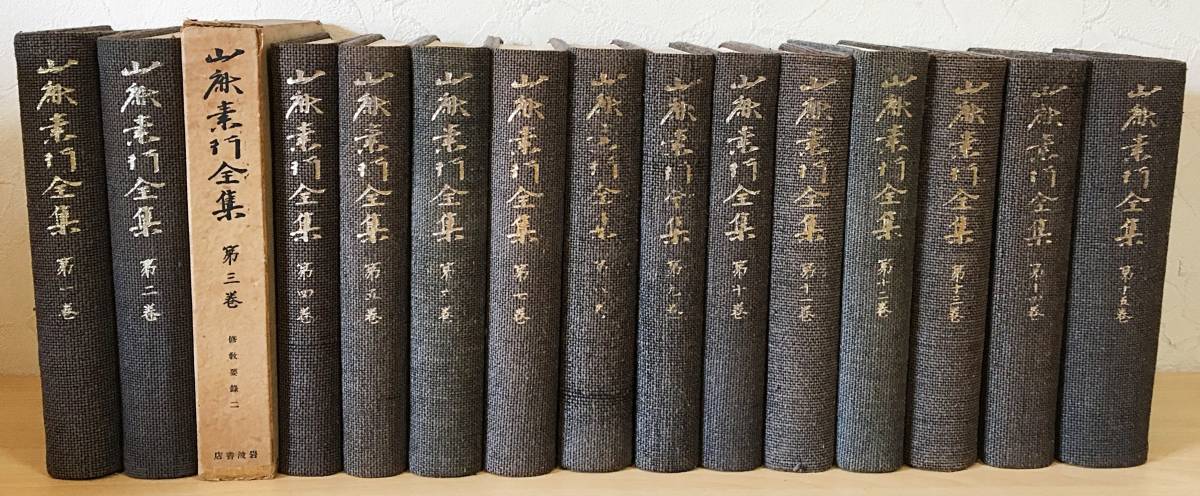 山鹿素行全集 第一巻
山鹿素行全集 第二巻
山鹿素行全集 第三巻 修教要錄二
店書波岩
山鹿素行全集 第四巻
山鹿素行全集 第五巻
山鹿素行全集 第六巻
山鹿素行全集 第七巻
山鹿素行全集 第八巻
山鹿素行全集 第九巻
山鹿素行全集 第十巻
山鹿素行全集 第十一巻
山鹿素行全集 第十二巻
山鹿素行全集 第十三巻
山鹿素行全集 第十四巻
山鹿素行全集 第十五巻